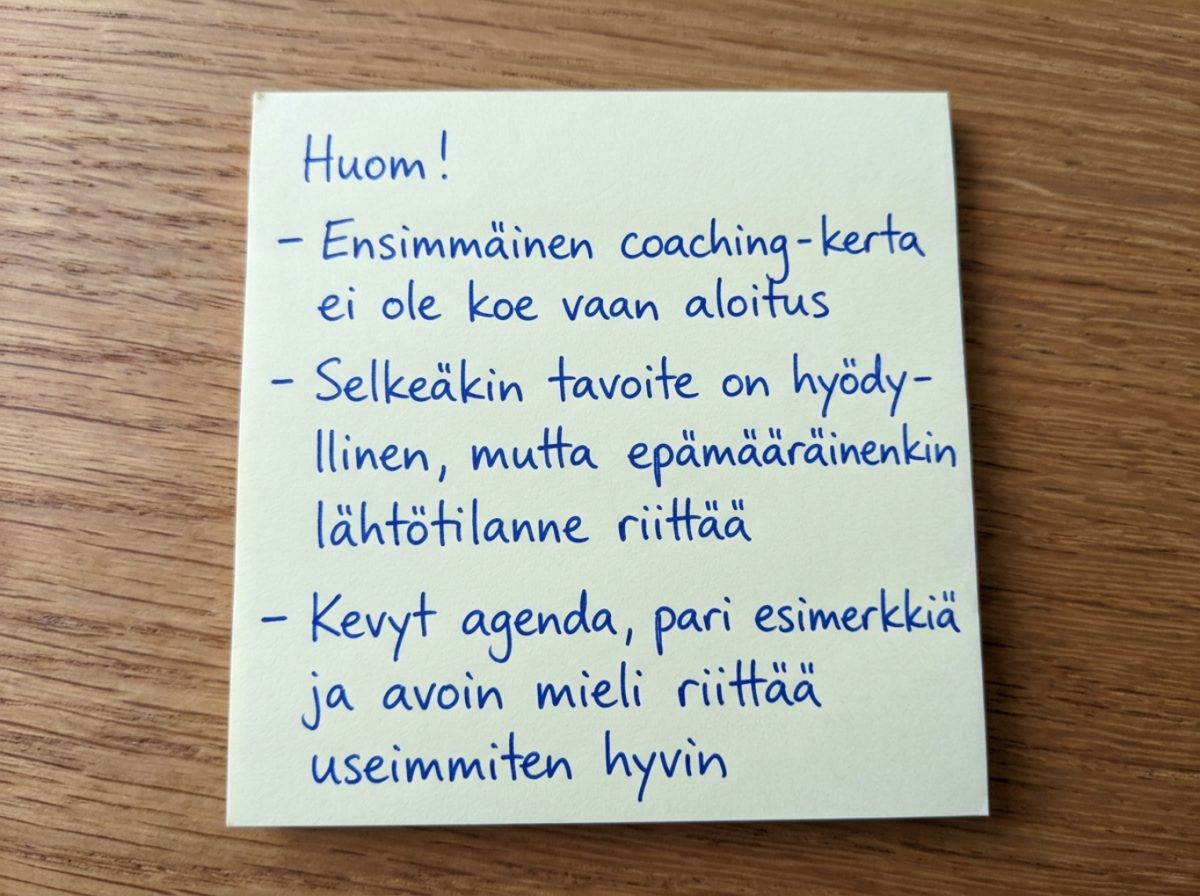 Huom!
- Ensimmäinen coaching-kerta
ei ole koe vaan aloitus
- Selkeäkin tavoite on hyödy-
llinen, mutta epämääräinenkin
lähtötilanne riittää
- Kevyt agenda, pari esimerkkiä
ja avoin mieli riittää
useimmiten hyvin